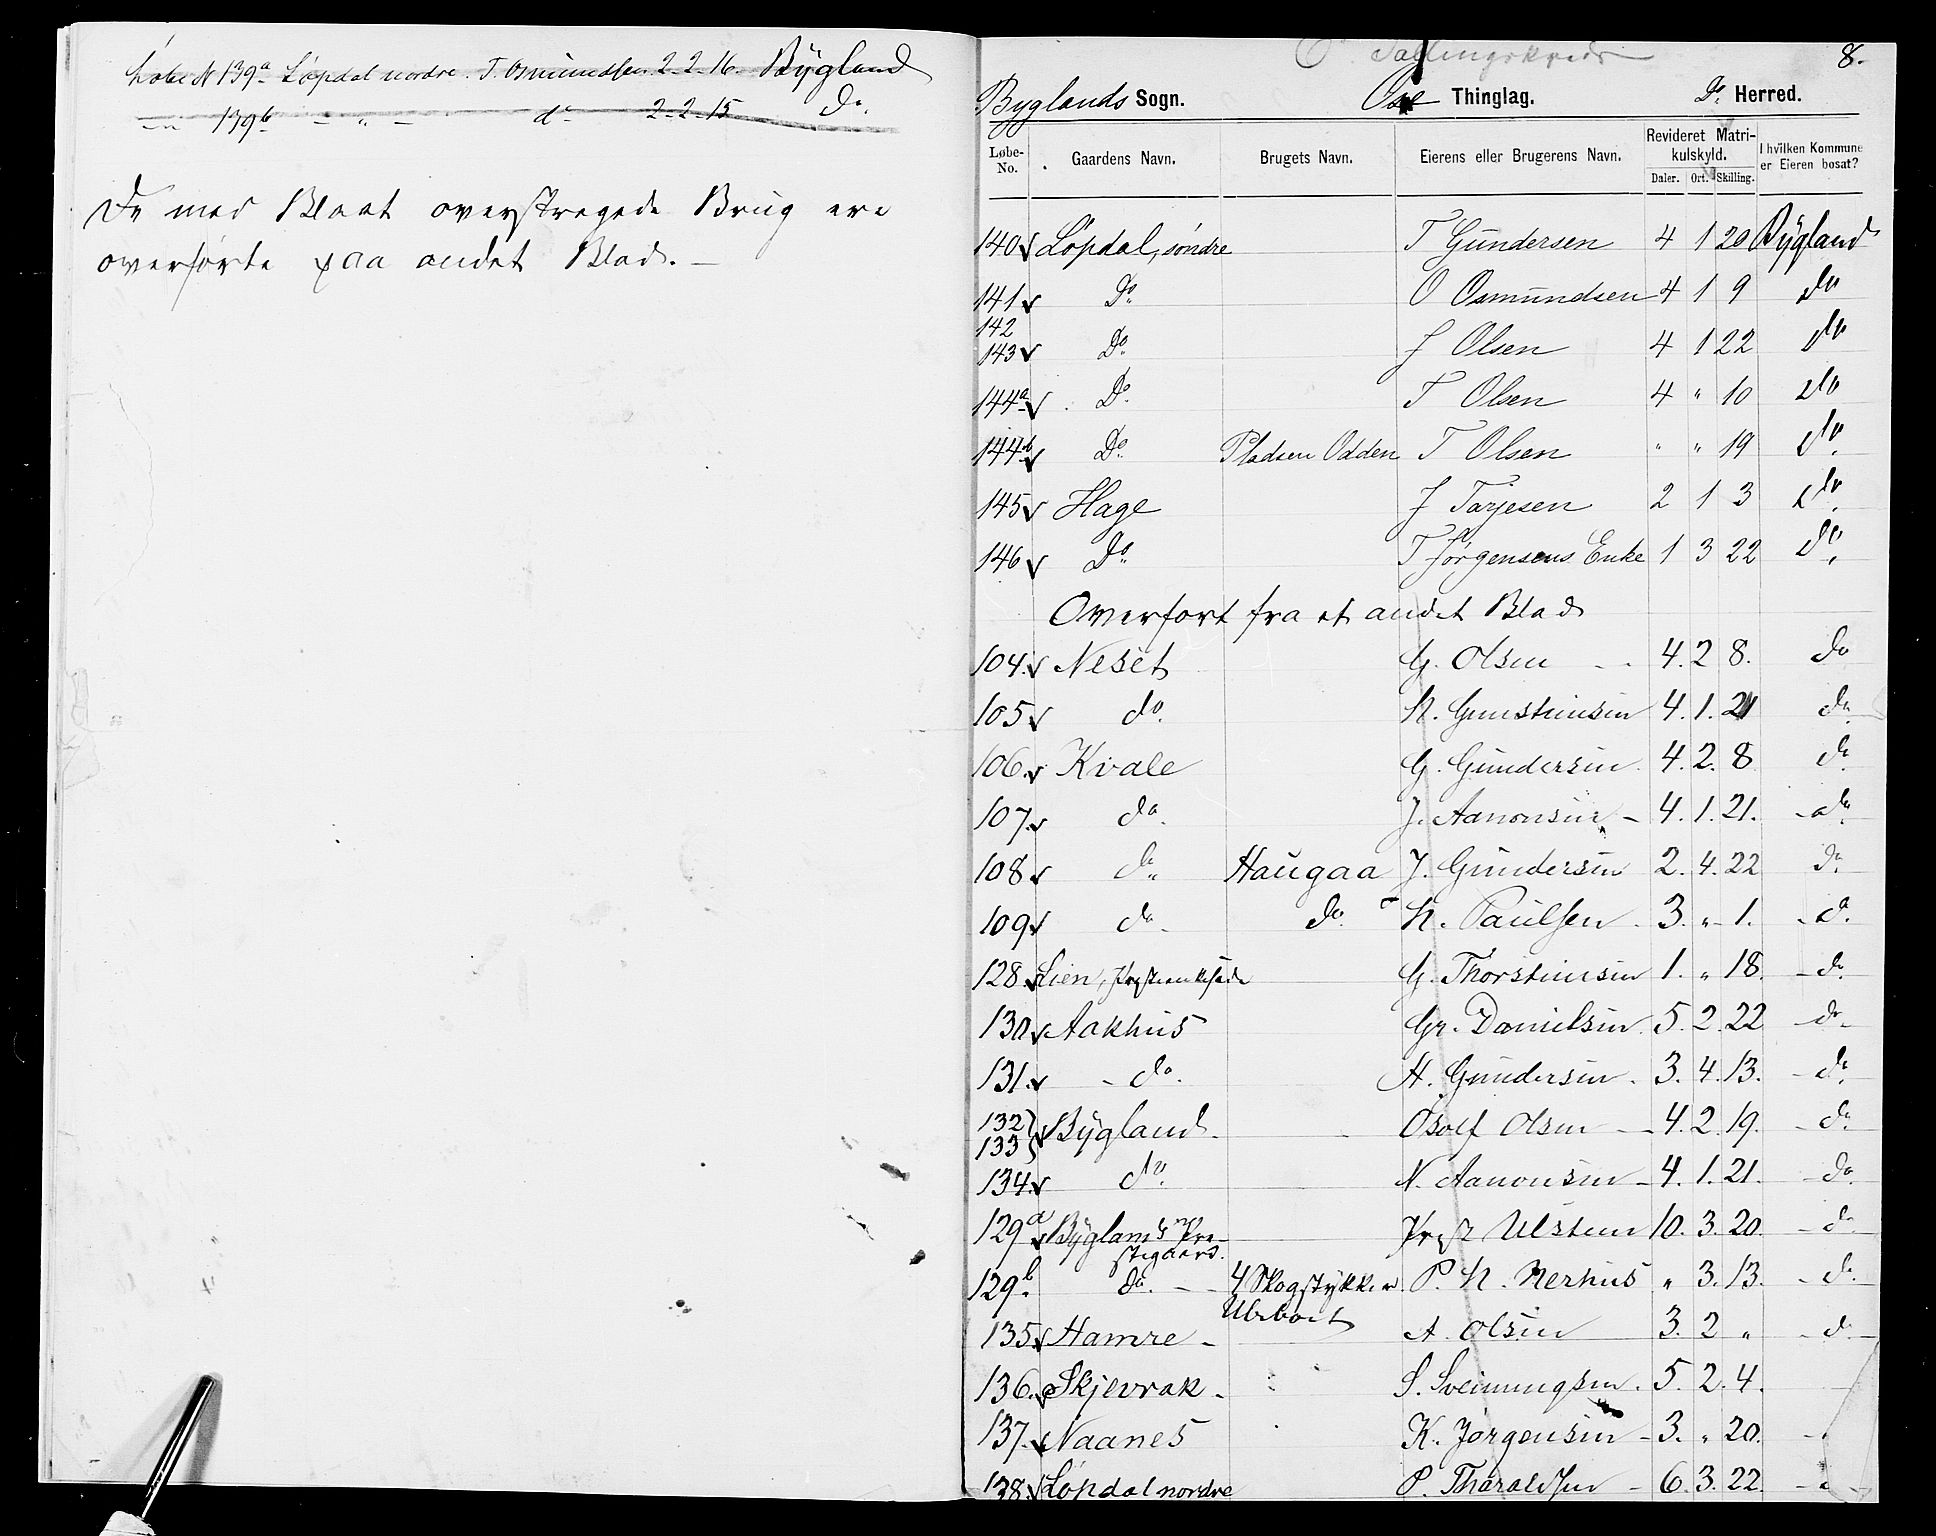 Løbe N 139a Løpdal nordre. T. Osmundsen 2-2-16. Bygland
139b - " - do 2-2-15 Do.
De med Blaat overstregede Brug ere
overførte paa andet Blad. -
8.
Byglands Sogn. Ose Thinglag. Do. Herred.
Løbe-No. Gaardens Navn. Brugets Navn. Eierens eller Brugerens Navn. Revideret Matrikulskyld. I hvilken Kommune er Eieren bosat?
Daler. Ort. Skilling.
140 Løpdal, søndre T Gundersen 4 1 20 Bygland
141 Do. O Osmundsen 4 1 9 do
142
143 Do. J Olsen 4 1 22 do
144a Do. T Olsen 4 " 10 do
144b Do. Pladsen Odden T Olsen " " 19 do.
145 Hage J Tarjesen 2 1 3 do.
146 Do. T Jørgensens Enke 1 3 22 do.
Overført fra et andet Blad
104. Neset G. Olsen 4. 2 8. do
105 do. K. Gunsteinsen 4. 1. 21 do.
106. Kvale G. Gundersen 4. 2. 8 do.
107. do. J. Aanonsen - 4. 1. 21. do.
108. do. Haugaa J. Gundersen 2. 4. 22 do.
109. do. do. K. Paulsen. 3. " 1. do.
128. Lien, Præsteenkesæde G. Thorsteinsen 1. " 18. do.
130. Aakhus Gr. Danielsen. 5. 2. 22 do.
131. do. H. Gundersen. 3. 4. 13. do.
132
133 Bygland Osolf Olsen 4. 2. 19. do.
134. do. N. Aanonsen - 4. 1. 21. do.
129a Byglands Præstegaard. Præst Ulstein 10. 3. 20. do
129b. do. 4 Skogstykker P. N. Nerhus " 3. 13. do.
Ubeboet
135. Hamre - A. Olsen 3. 2 " do.
136. Skjevrak. S. Sveinungsen. 5. 2. 4.
137. Naanes K. Jørgensen - 3. " 20.
138. Løpdal nordre P. Tharaldsen - 6. 3. 22.